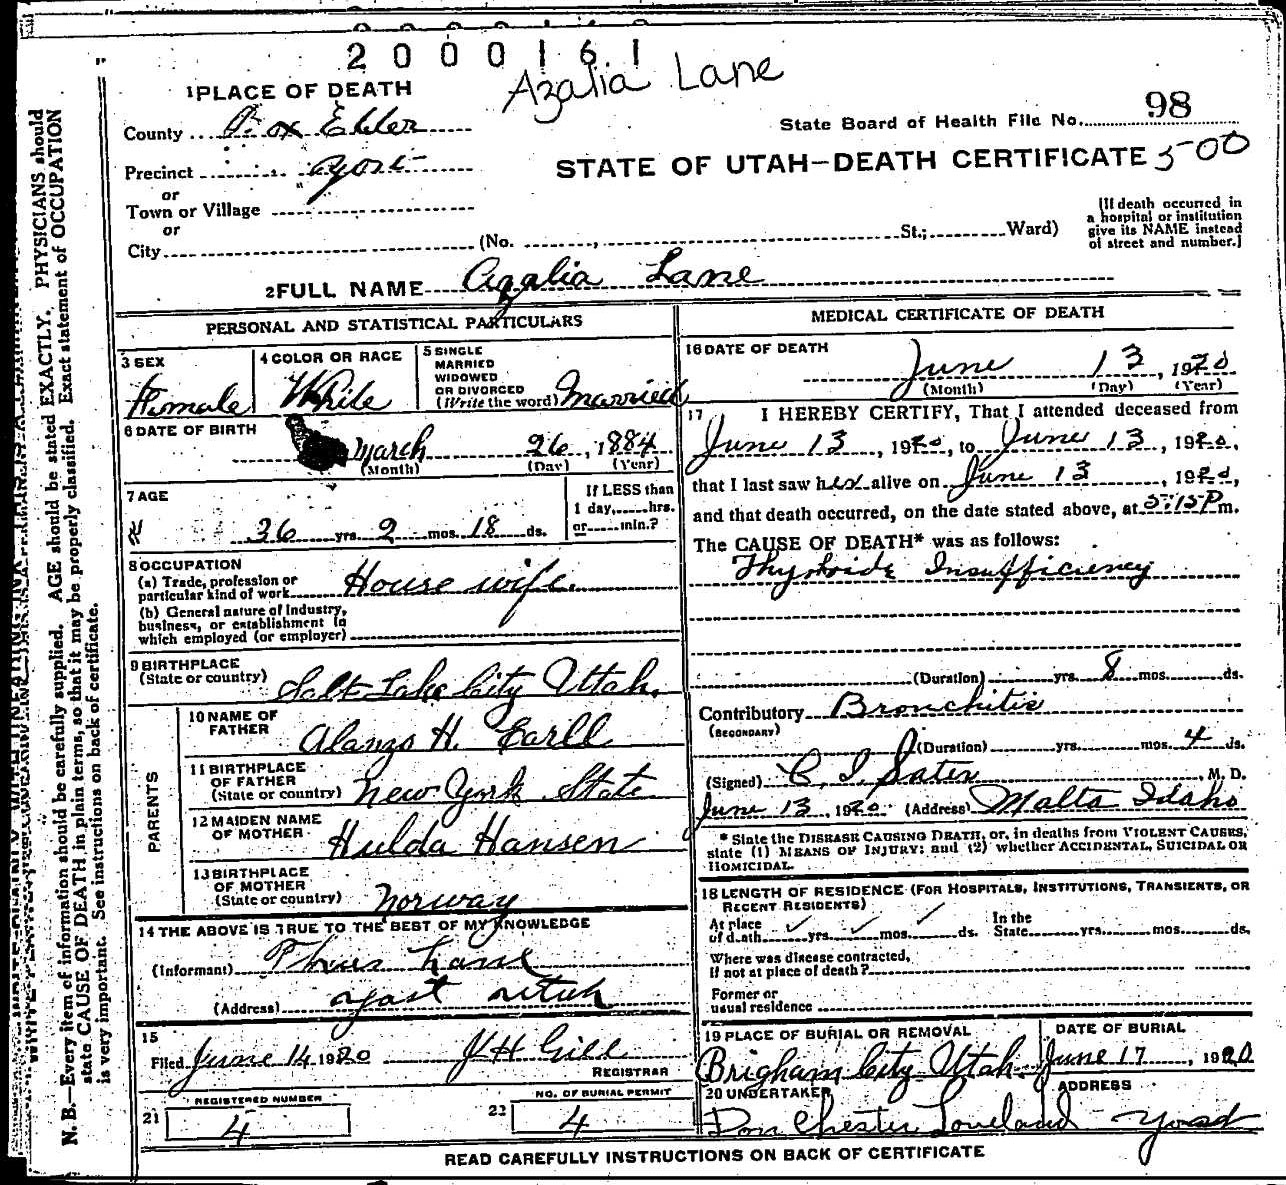 2 0 0 0 1 6 1
Azalia Lane
1 PLACE OF DEATH
County Box Elder
State Board of Health File No. 98
Precinct Yost
STATE OF UTAH—DEATH CERTIFICATE 500
or
Town or Village
or
City (No. , St.; Ward)
(If death occurred in
a hospital or institution
give its NAME instead
of street and number.)
2 FULL NAME Azalia Lane
PERSONAL AND STATISTICAL PARTICULARS
3 SEX
Female
4 COLOR OR RACE
White
5 SINGLE
MARRIED
WIDOWED
OR DIVORCED
(Write the word) Married
6 DATE OF BIRTH
March 26, 1884
(Month) (Day) (Year)
7 AGE
36 yrs. 2 mos. 18 ds.
If LESS than
1 day, hrs.
or min.?
8 OCCUPATION
(a) Trade, profession or
particular kind of work House wife.
(b) General nature of industry,
business, or establishment in
which employed (or employer)
9 BIRTHPLACE
(State or country) Salt Lake City Utah.
PARENTS
10 NAME OF
FATHER Alanzo H. Earll
11 BIRTHPLACE
OF FATHER
(State or country) New York State
12 MAIDEN NAME
OF MOTHER Hulda Hansen
13 BIRTHPLACE
OF MOTHER
(State or country) Norway
14 THE ABOVE IS TRUE TO THE BEST OF MY KNOWLEDGE
(Informant) Lane
(Address) Yost Utah
15
Filed June 14 1920 J H Gill
REGISTRAR
REGISTERED NUMBER
21 4
NO. OF BURIAL PERMIT
22 4
MEDICAL CERTIFICATE OF DEATH
16 DATE OF DEATH
June 13, 1920
(Month) (Day) (Year)
17 I HEREBY CERTIFY, That I attended deceased from
June 13, 1920, to June 13, 1920,
that I last saw her alive on June 13, 1920,
and that death occurred, on the date stated above, at 5:15 P m.
The CAUSE OF DEATH* was as follows:
Thyroide Insufficiency
(Duration) yrs. 8 mos. ds.
Contributory Bronchitis
(SECONDARY)
(Duration) yrs. mos. 4 ds.
(Signed) C. I. Sater, M. D.
June 13, 1920 (Address) Malta Idaho
* State the DISEASE CAUSING DEATH, or, in deaths from VIOLENT CAUSES,
state (1) MEANS OF INJURY; and (2) whether ACCIDENTAL, SUICIDAL OR
HOMICIDAL.
18 LENGTH OF RESIDENCE (FOR HOSPITALS, INSTITUTIONS, TRANSIENTS, OR
RECENT RESIDENTS)
At place
of death yrs. mos. ds.
In the
State yrs. mos. ds.
Where was disease contracted,
if not at place of death?
Former or
usual residence
19 PLACE OF BURIAL OR REMOVAL
Brigham City Utah.
DATE OF BURIAL
June 17, 1920
20 UNDERTAKER
Don Chester Loveland
ADDRESS
Yost
READ CAREFULLY INSTRUCTIONS ON BACK OF CERTIFICATE
N. B.—Every item of information should be carefully supplied. AGE should be stated EXACTLY. PHYSICIANS should
state CAUSE OF DEATH in plain terms, so that it may be properly classified. Exact statement of OCCUPATION
is very important. See instructions on back of certificate.